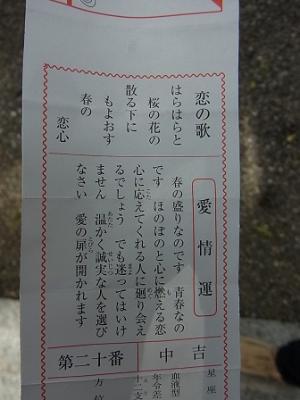 恋の歌
はらはらと
桜の花の
散る下に
もよおす
春の
恋心
愛情運
春の盛りなのです 青春なの
です ほのぼのと心に燃える恋
心に応えてくれる人に廻り会え
るでしょう でも迷ってはいけ
ません 温かく誠実な人を選び
なさい 愛の扉が開かれます
第二十番
中吉
星座
血液型
年令差
十二支
方位